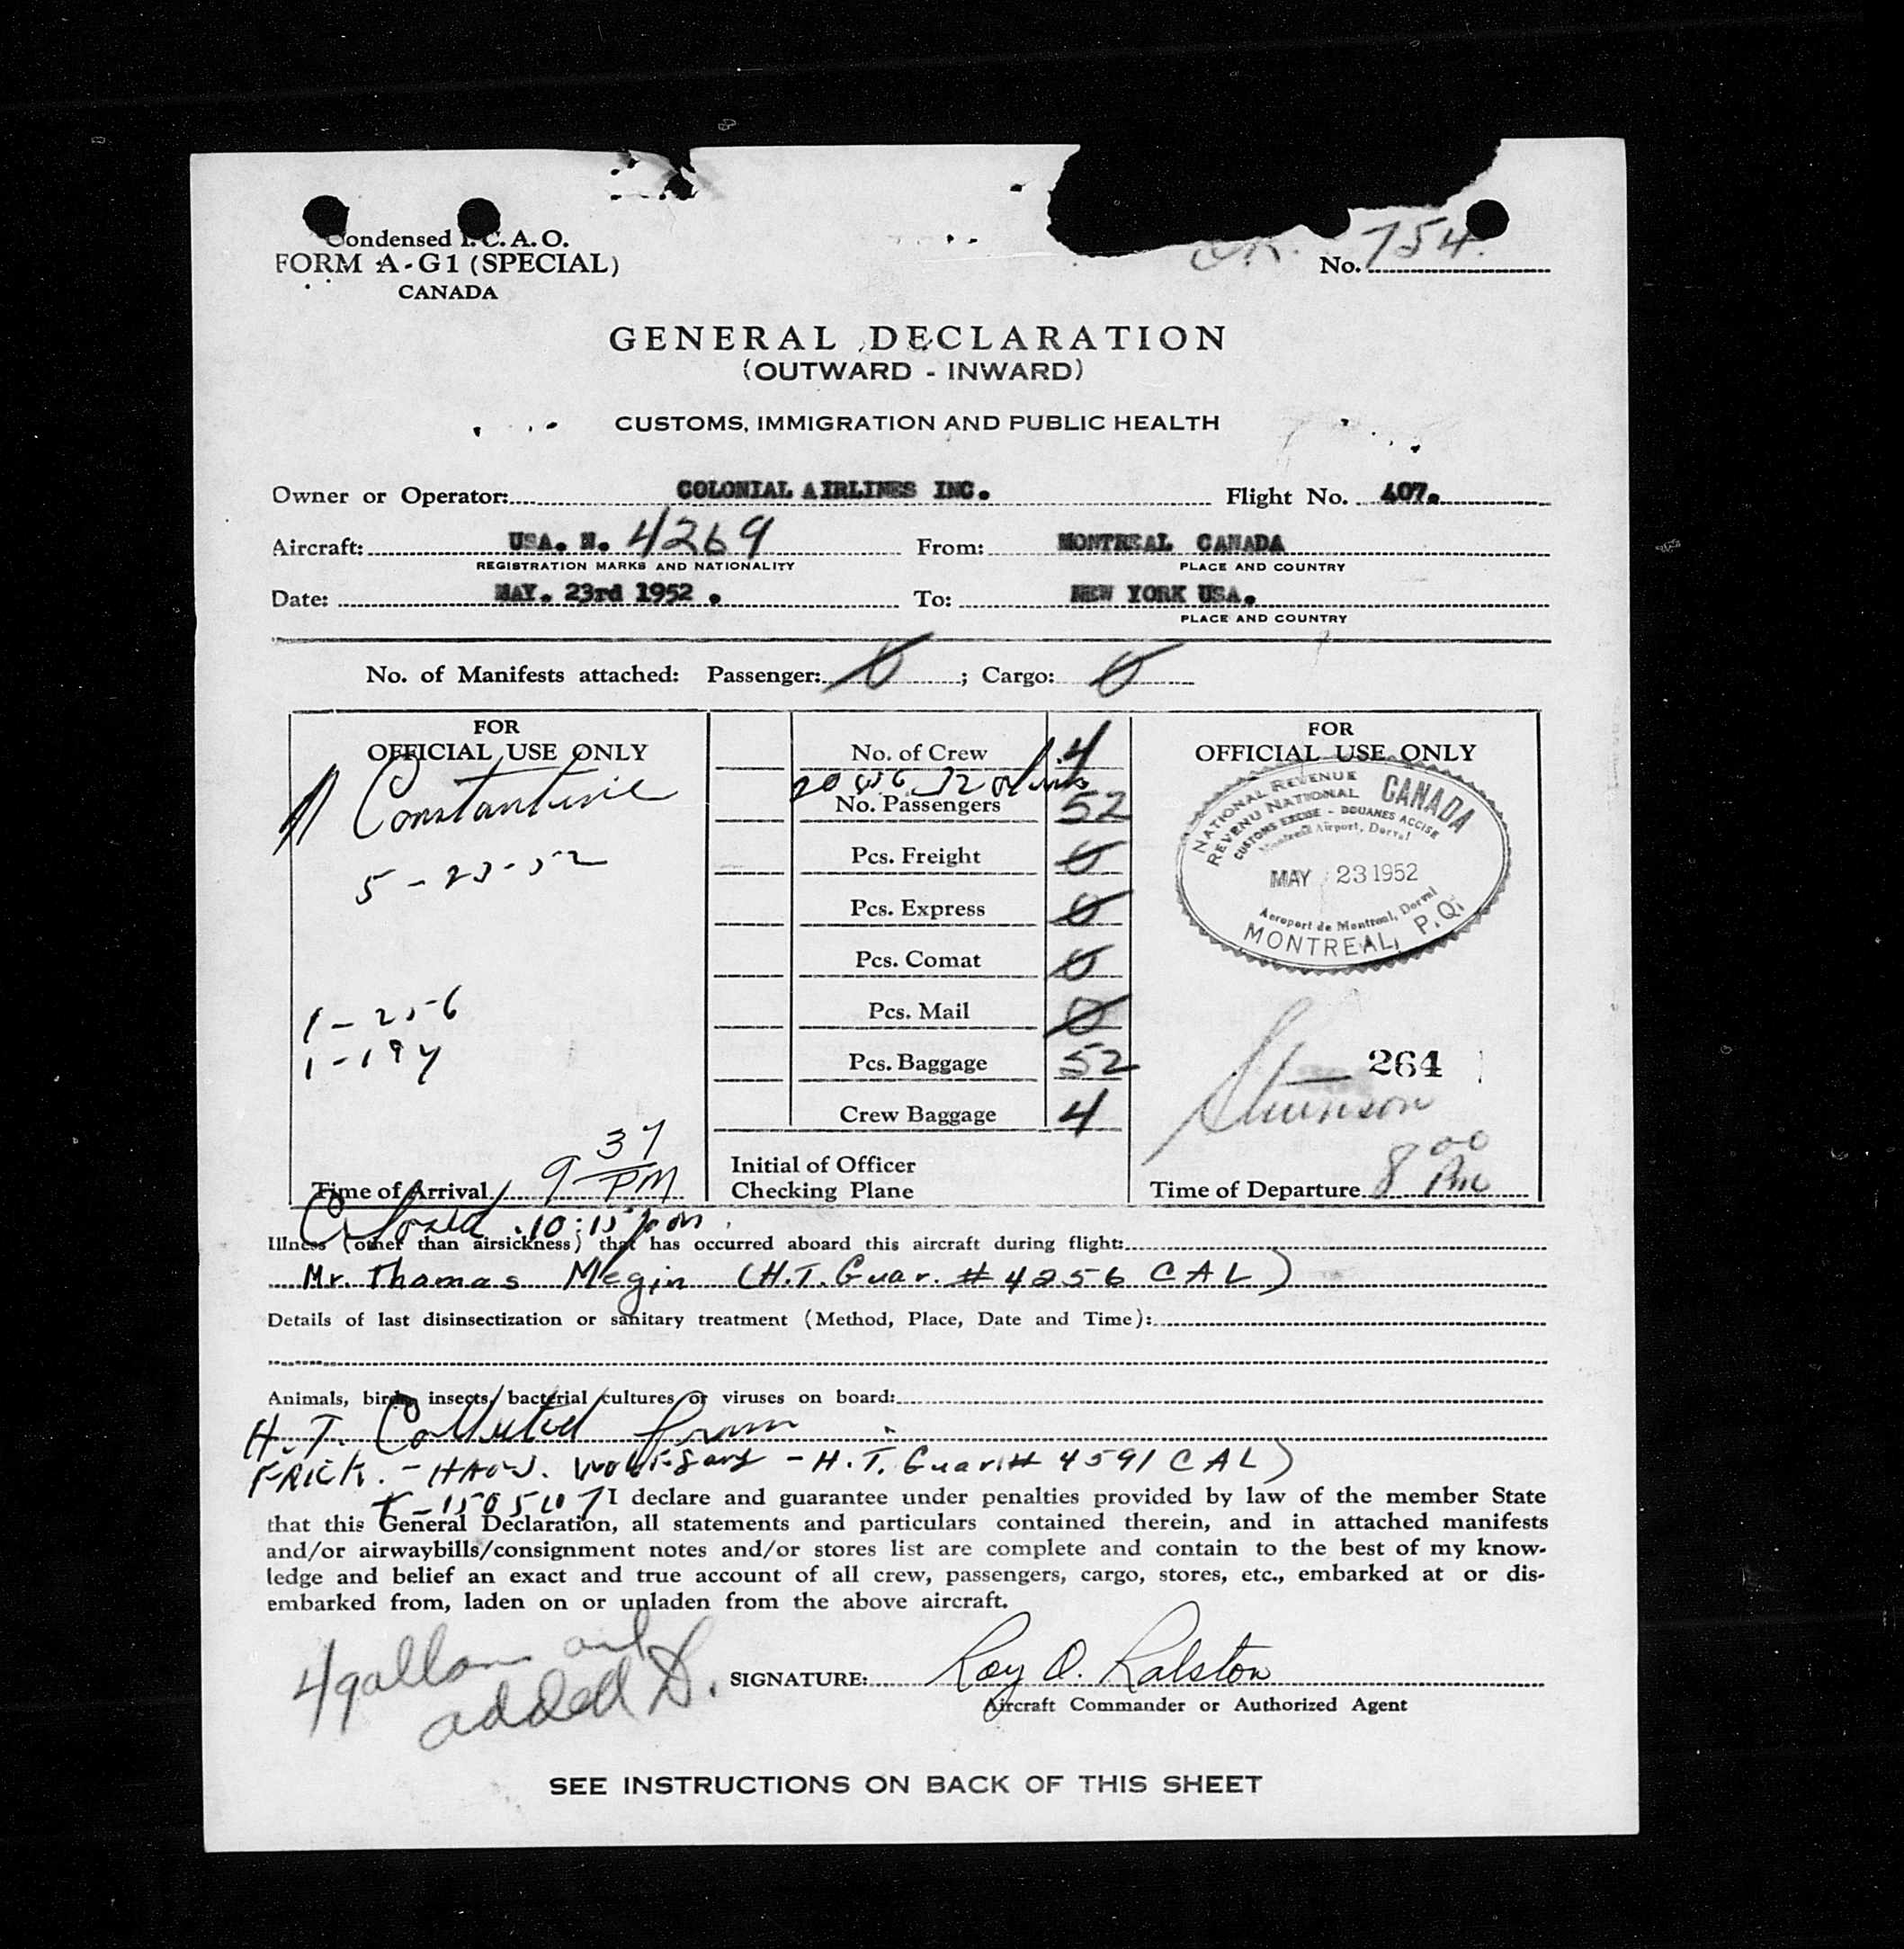 Condensed I.C.A.O.
FORM A-G1 (SPECIAL)
CANADA
No. 754.
GENERAL DECLARATION
(OUTWARD - INWARD)
CUSTOMS, IMMIGRATION AND PUBLIC HEALTH
Owner or Operator: COLONIAL AIRLINES INC. Flight No. 407.
Aircraft: USA. N. 4269 From: MONTREAL CANADA
REGISTRATION MARKS AND NATIONALITY PLACE AND COUNTRY
Date: MAY. 23rd 1952. To: NEW YORK USA.
PLACE AND COUNTRY
No. of Manifests attached: Passenger: 0; Cargo: 0
FOR
OFFICIAL USE ONLY
Constantine
5-23-52
1-256
1-194
9 37 PM
Time of Arrival
No. of Crew 4
20 USC 32
No. Passengers 52
Pcs. Freight 0
Pcs. Express 0
Pcs. Comat 0
Pcs. Mail 0
Pcs. Baggage 52
Crew Baggage 4
Initial of Officer
Checking Plane
FOR
OFFICIAL USE ONLY
NATIONAL REVENUE CANADA
REVENU NATIONAL
CUSTOMS EXCISE - DOUANES ACCISE
Montreal Airport, Dorval
MAY 23 1952
Aeroport de Montreal, Dorval
MONTREAL, P.Q.
264
Time of Departure 8 00 PM
10:15 pm
Illness (other than airsickness) that has occurred aboard this aircraft during flight:
Mr. Thomas Megin (H.T. Guar. # 4256 CAL)
Details of last disinsectization or sanitary treatment (Method, Place, Date and Time):
Animals, birds, insects, bacterial cultures or viruses on board:
H.T. Collected from
FRICK. - HANS. Wolfgang - H.T. Guar. # 4591 CAL)
T-1505107 I declare and guarantee under penalties provided by law of the member State
that this General Declaration, all statements and particulars contained therein, and in attached manifests
and/or airwaybills/consignment notes and/or stores list are complete and contain to the best of my know-
ledge and belief an exact and true account of all crew, passengers, cargo, stores, etc., embarked at or dis-
embarked from, laden on or unladen from the above aircraft.
4 gallons oil
added S.
SIGNATURE: Roy O. Ralston
Aircraft Commander or Authorized Agent
SEE INSTRUCTIONS ON BACK OF THIS SHEET